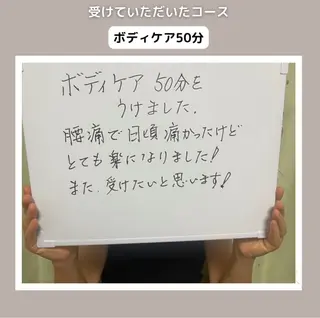 受けていただいたコース
ボディケア50分
ボディケア 50分を
うけました.
腰痛で日頃痛かったけど
とても楽になりました!
また、受けたいと思います!